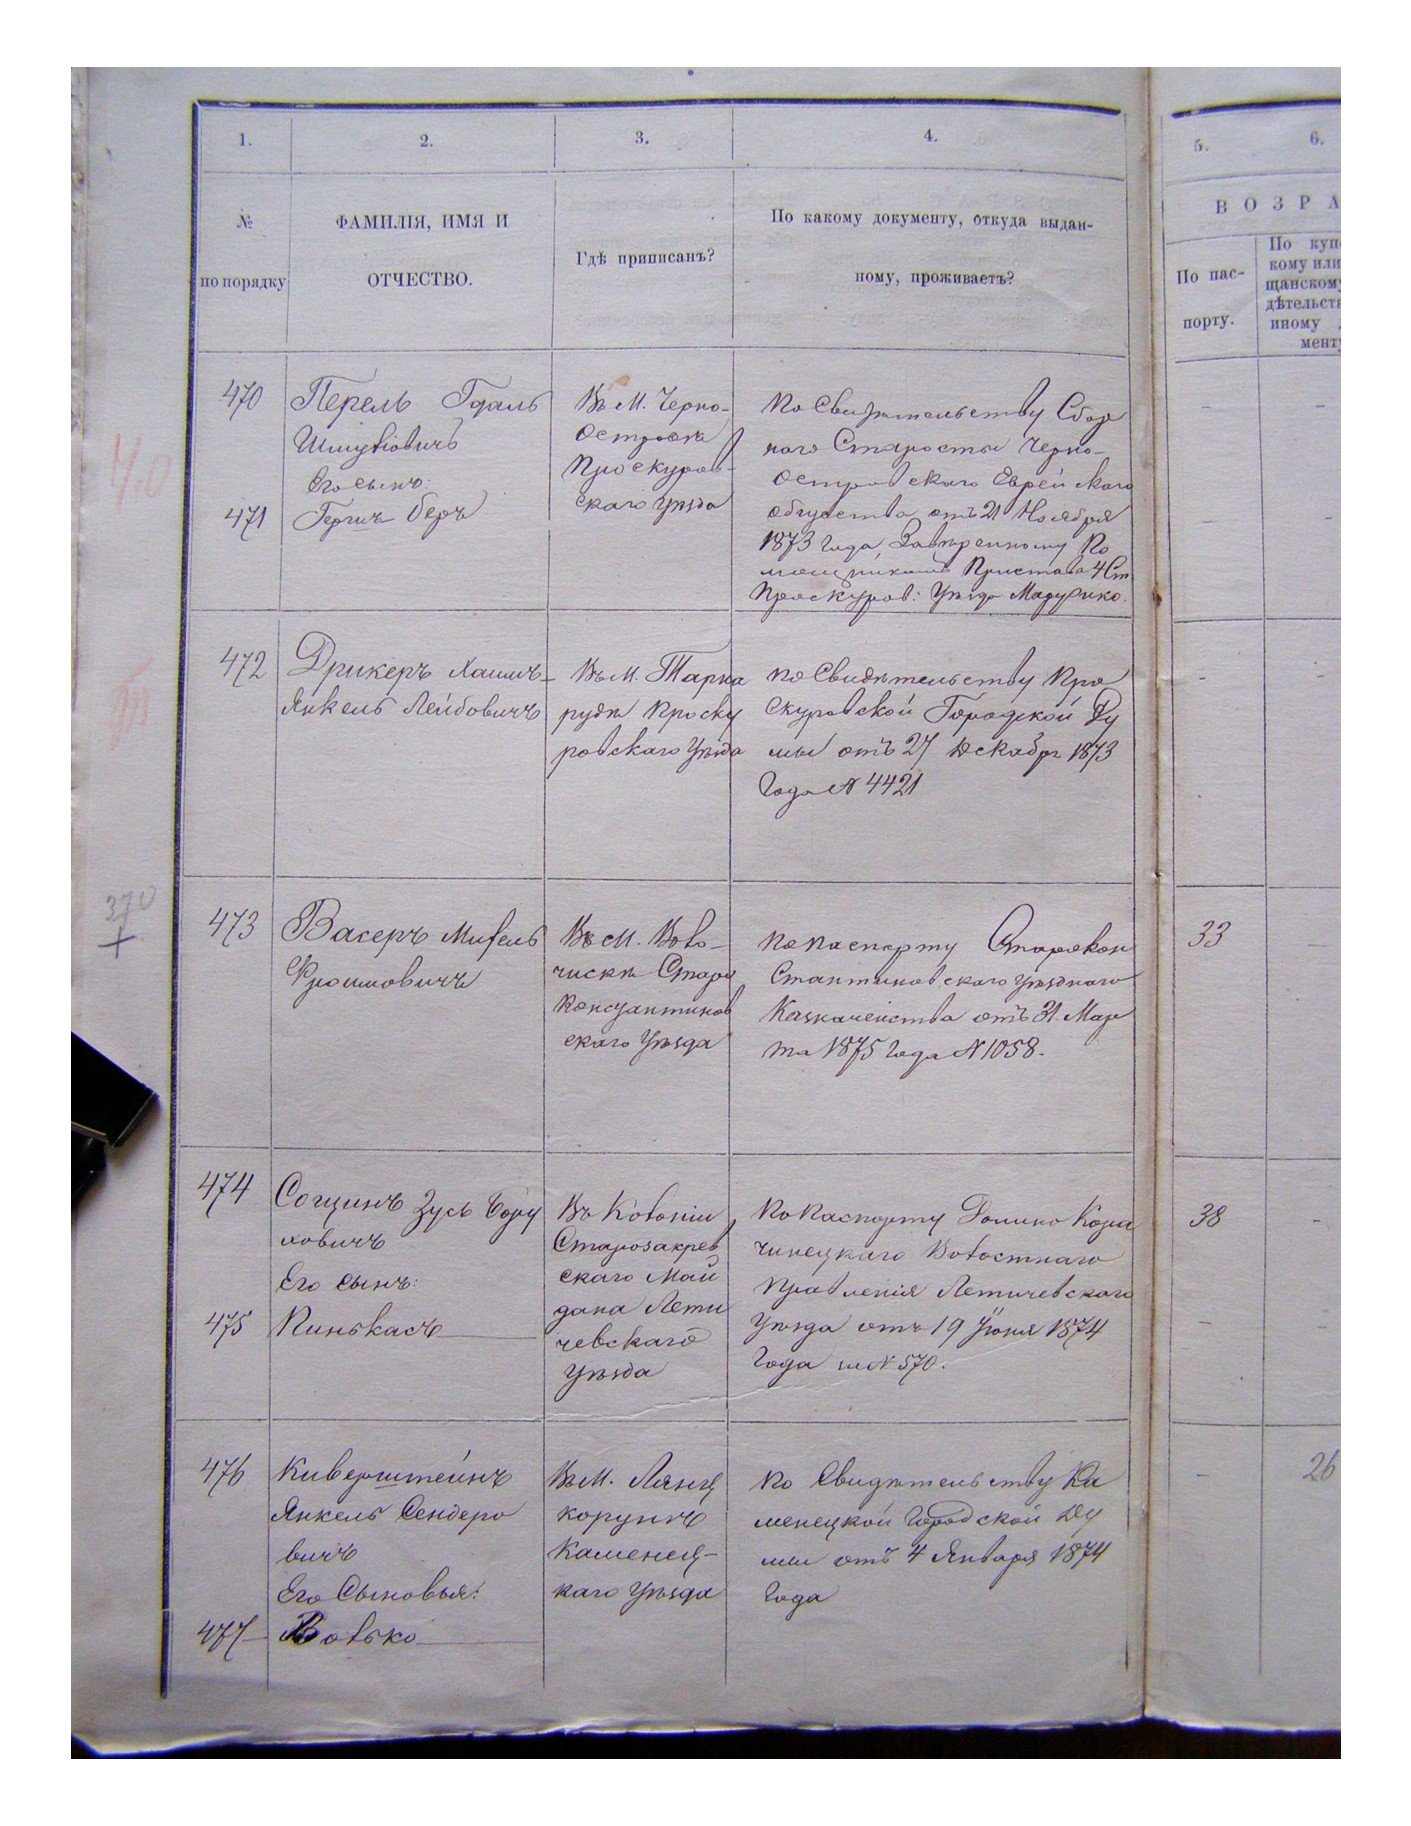 1.
2.
3.
4.
5.
6.
№
по порядку
ФАМИЛІЯ, ИМЯ И
ОТЧЕСТВО.
Гдѣ приписанъ?
По какому документу, откуда выдан-
ному, проживаетъ?
ВОЗРА
По пас-
порту.
По куп
кому или
щанскому
дѣтельст
иному
мент
40
470
Перель Гдаль
Шмулiовичъ
Его сынъ:
471
Гершъ Беръ
Въ М. Черно-
Островѣ
Проскуров-
скаго уѣзда
По Свидѣтельству Сбор
наго Старосты Черно-
Островскаго Еврейскаго
общества отъ 21 Ноября
1873 Года, Завѣренному По
мощникомъ Пристава 4 Ст.
Проскуров: Уѣзда
472
Дрикеръ Хаимъ-
Янкель Лейбовичъ
Въ М. Тарна
рудѣ Проску
ровскаго Уѣзда
по Свидѣтельству Про
скуровской Городской Ду
мы отъ 27 Декабря 1873
Года № 4421
370
473
Васеръ
Фроимовичъ
Въ М. Воло-
чискѣ Старо
Константинов
скаго Уѣзда
По паспорту Старокон
стантиновскаго уѣзднаго
Казначейства отъ 31 Мар
та 1875 Года № 1058.
33
474
Зусь Бору
ховичъ
Его сынъ:
475
Пинькасъ
Въ Колоніи
Старозакрев
скаго Май
дана Лети
чевскаго
Уѣзда
По Паспорту
Волостнаго
Правленія Летичевскаго
Уѣзда отъ 19 Іюня 1874
Года за № 570.
38
476
Киверштейнъ
Янкель Сендеро
вичъ
Его Сыновья:
477
Волько
Въ М. Лянц
корунъ
Каменец-
каго Уѣзда
По Свидѣтельству Ка
менецкой Городской Ду
мы отъ 4 Января 1874
Года
26